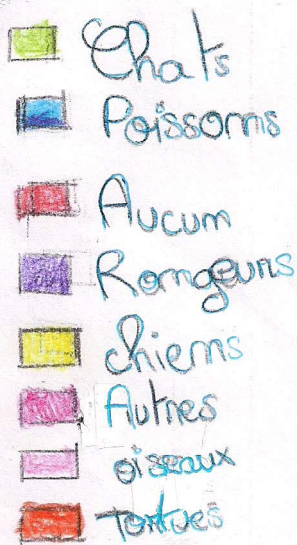 Chats
Poissons
Aucun
Rongeurs
chiens
Autres
oiseaux
Tortues